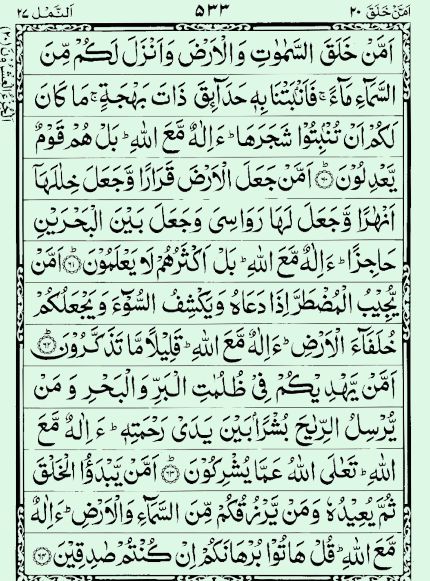 اَمَّنْ خَلَقَ ٢٠ ٥٣٣ اَلنَّمْل ٢٧
اَمَّنْ خَلَقَ السَّمٰوٰتِ وَالْاَرْضَ وَاَنْزَلَ لَكُمْ مِّنَ
السَّمَآءِ مَآءً ۚ فَاَنْۢبَتْنَا بِهٖ حَدَآئِقَ ذَاتَ بَهْجَةٍ ۚ مَا كَانَ
لَكُمْ اَنْ تُنْۢبِتُوْا شَجَرَهَا ؕ ءَاِلٰهٌ مَّعَ اللّٰهِ ؕ بَلْ هُمْ قَوْمٌ
يَّعْدِلُوْنَ ۟ؕ۶۰ اَمَّنْ جَعَلَ الْاَرْضَ قَرَارًا وَّجَعَلَ خِلٰلَهَاۤ
اَنْهٰرًا وَّجَعَلَ لَهَا رَوَاسِىَ وَجَعَلَ بَيْنَ الْبَحْرَيْنِ
حَاجِزًا ؕ ءَاِلٰهٌ مَّعَ اللّٰهِ ؕ بَلْ اَكْثَرُهُمْ لَا يَعْلَمُوْنَ ؕ۶۱ اَمَّنْ
يُّجِيْبُ الْمُضْطَرَّ اِذَا دَعَاهُ وَيَكْشِفُ السُّوْٓءَ وَيَجْعَلُكُمْ
خُلَفَآءَ الْاَرْضِ ؕ ءَاِلٰهٌ مَّعَ اللّٰهِ ؕ قَلِيْلًا مَّا تَذَكَّرُوْنَ ؕ۶۲
اَمَّنْ يَّهْدِيْكُمْ فِىْ ظُلُمٰتِ الْبَرِّ وَالْبَحْرِ وَمَنْ
يُّرْسِلُ الرِّيٰحَ بُشْرًۢا بَيْنَ يَدَىْ رَحْمَتِهٖ ؕ ءَاِلٰهٌ مَّعَ
اللّٰهِ ؕ تَعٰلَى اللّٰهُ عَمَّا يُشْرِكُوْنَ ؕ۶۳ اَمَّنْ يَّبْدَؤُا الْخَلْقَ
ثُمَّ يُعِيْدُهٗ وَمَنْ يَّرْزُقُكُمْ مِّنَ السَّمَآءِ وَالْاَرْضِ ؕ ءَاِلٰهٌ
مَّعَ اللّٰهِ ؕ قُلْ هَاتُوْا بُرْهَانَكُمْ اِنْ كُنْتُمْ صٰدِقِيْنَ ۶۴